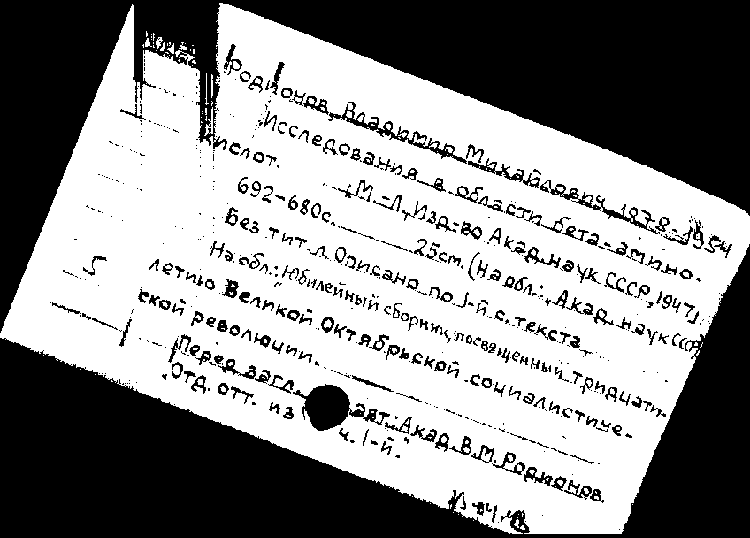 Родионов, Владимир Михайлович, 1878-1954
Исследования в области бета-амино-
кислот. [М.-Л., Изд-во Акад. наук СССР, 1947].
692-680с. 25см. (На обл.: Акад. наук СССР)
Без тит. л. Описано по 1-й с. текста.
На обл.: "Юбилейный сборник, посвященный тридцати-
летию Великой Октябрьской социалистиче-
ской революции.
Перед загл. авт.: Акад. В.М. Родионов.
Отд. отт. из ч. 1-й."
5